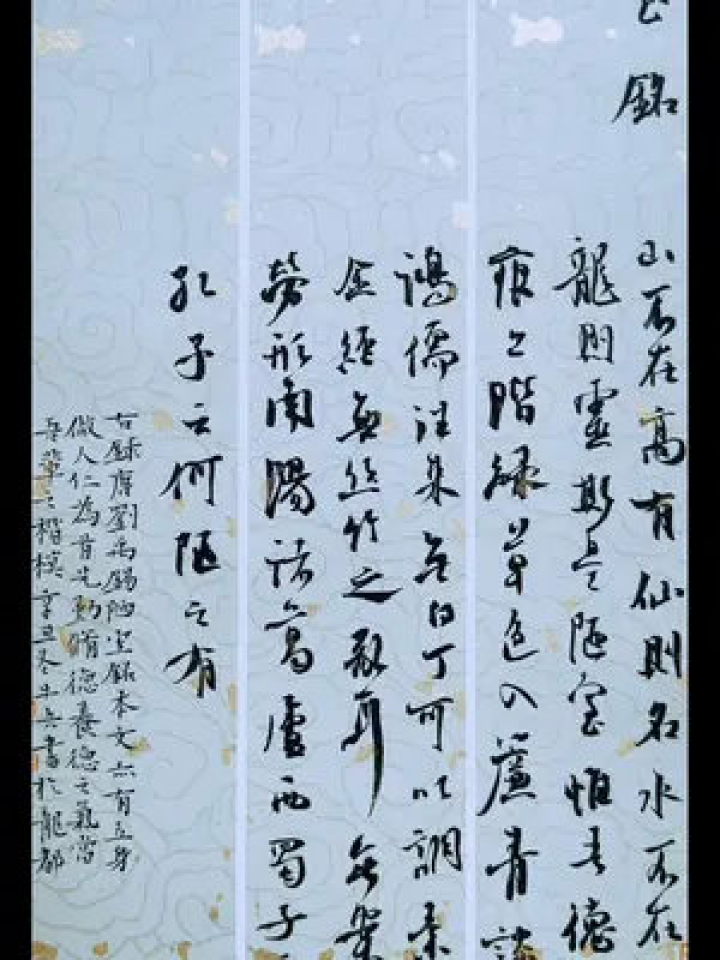 銘
山不在高有仙則名水不在
龍則靈斯是陋室惟吾德
痕上階綠草色入簾青談
鴻儒往來無白丁可以調素
金經無絲竹之亂耳無案
勞形南陽諸葛廬西蜀子
孔子云何陋之有
右錄唐劉禹錫陋室銘本文亦有立身
做人仁為首先勤脩德養德之氣當
吾輩之楷模辛丑冬士兵書於龍都